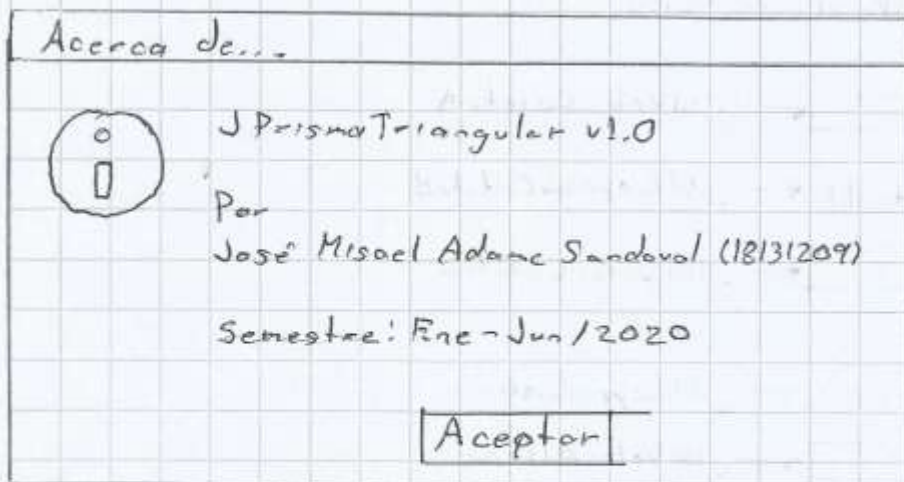 Acerca de...
JPrismaTriangular v1.0
Por
José Misael Adame Sandoval (18131209)
Semestre: Ene-Jun/2020
Aceptar